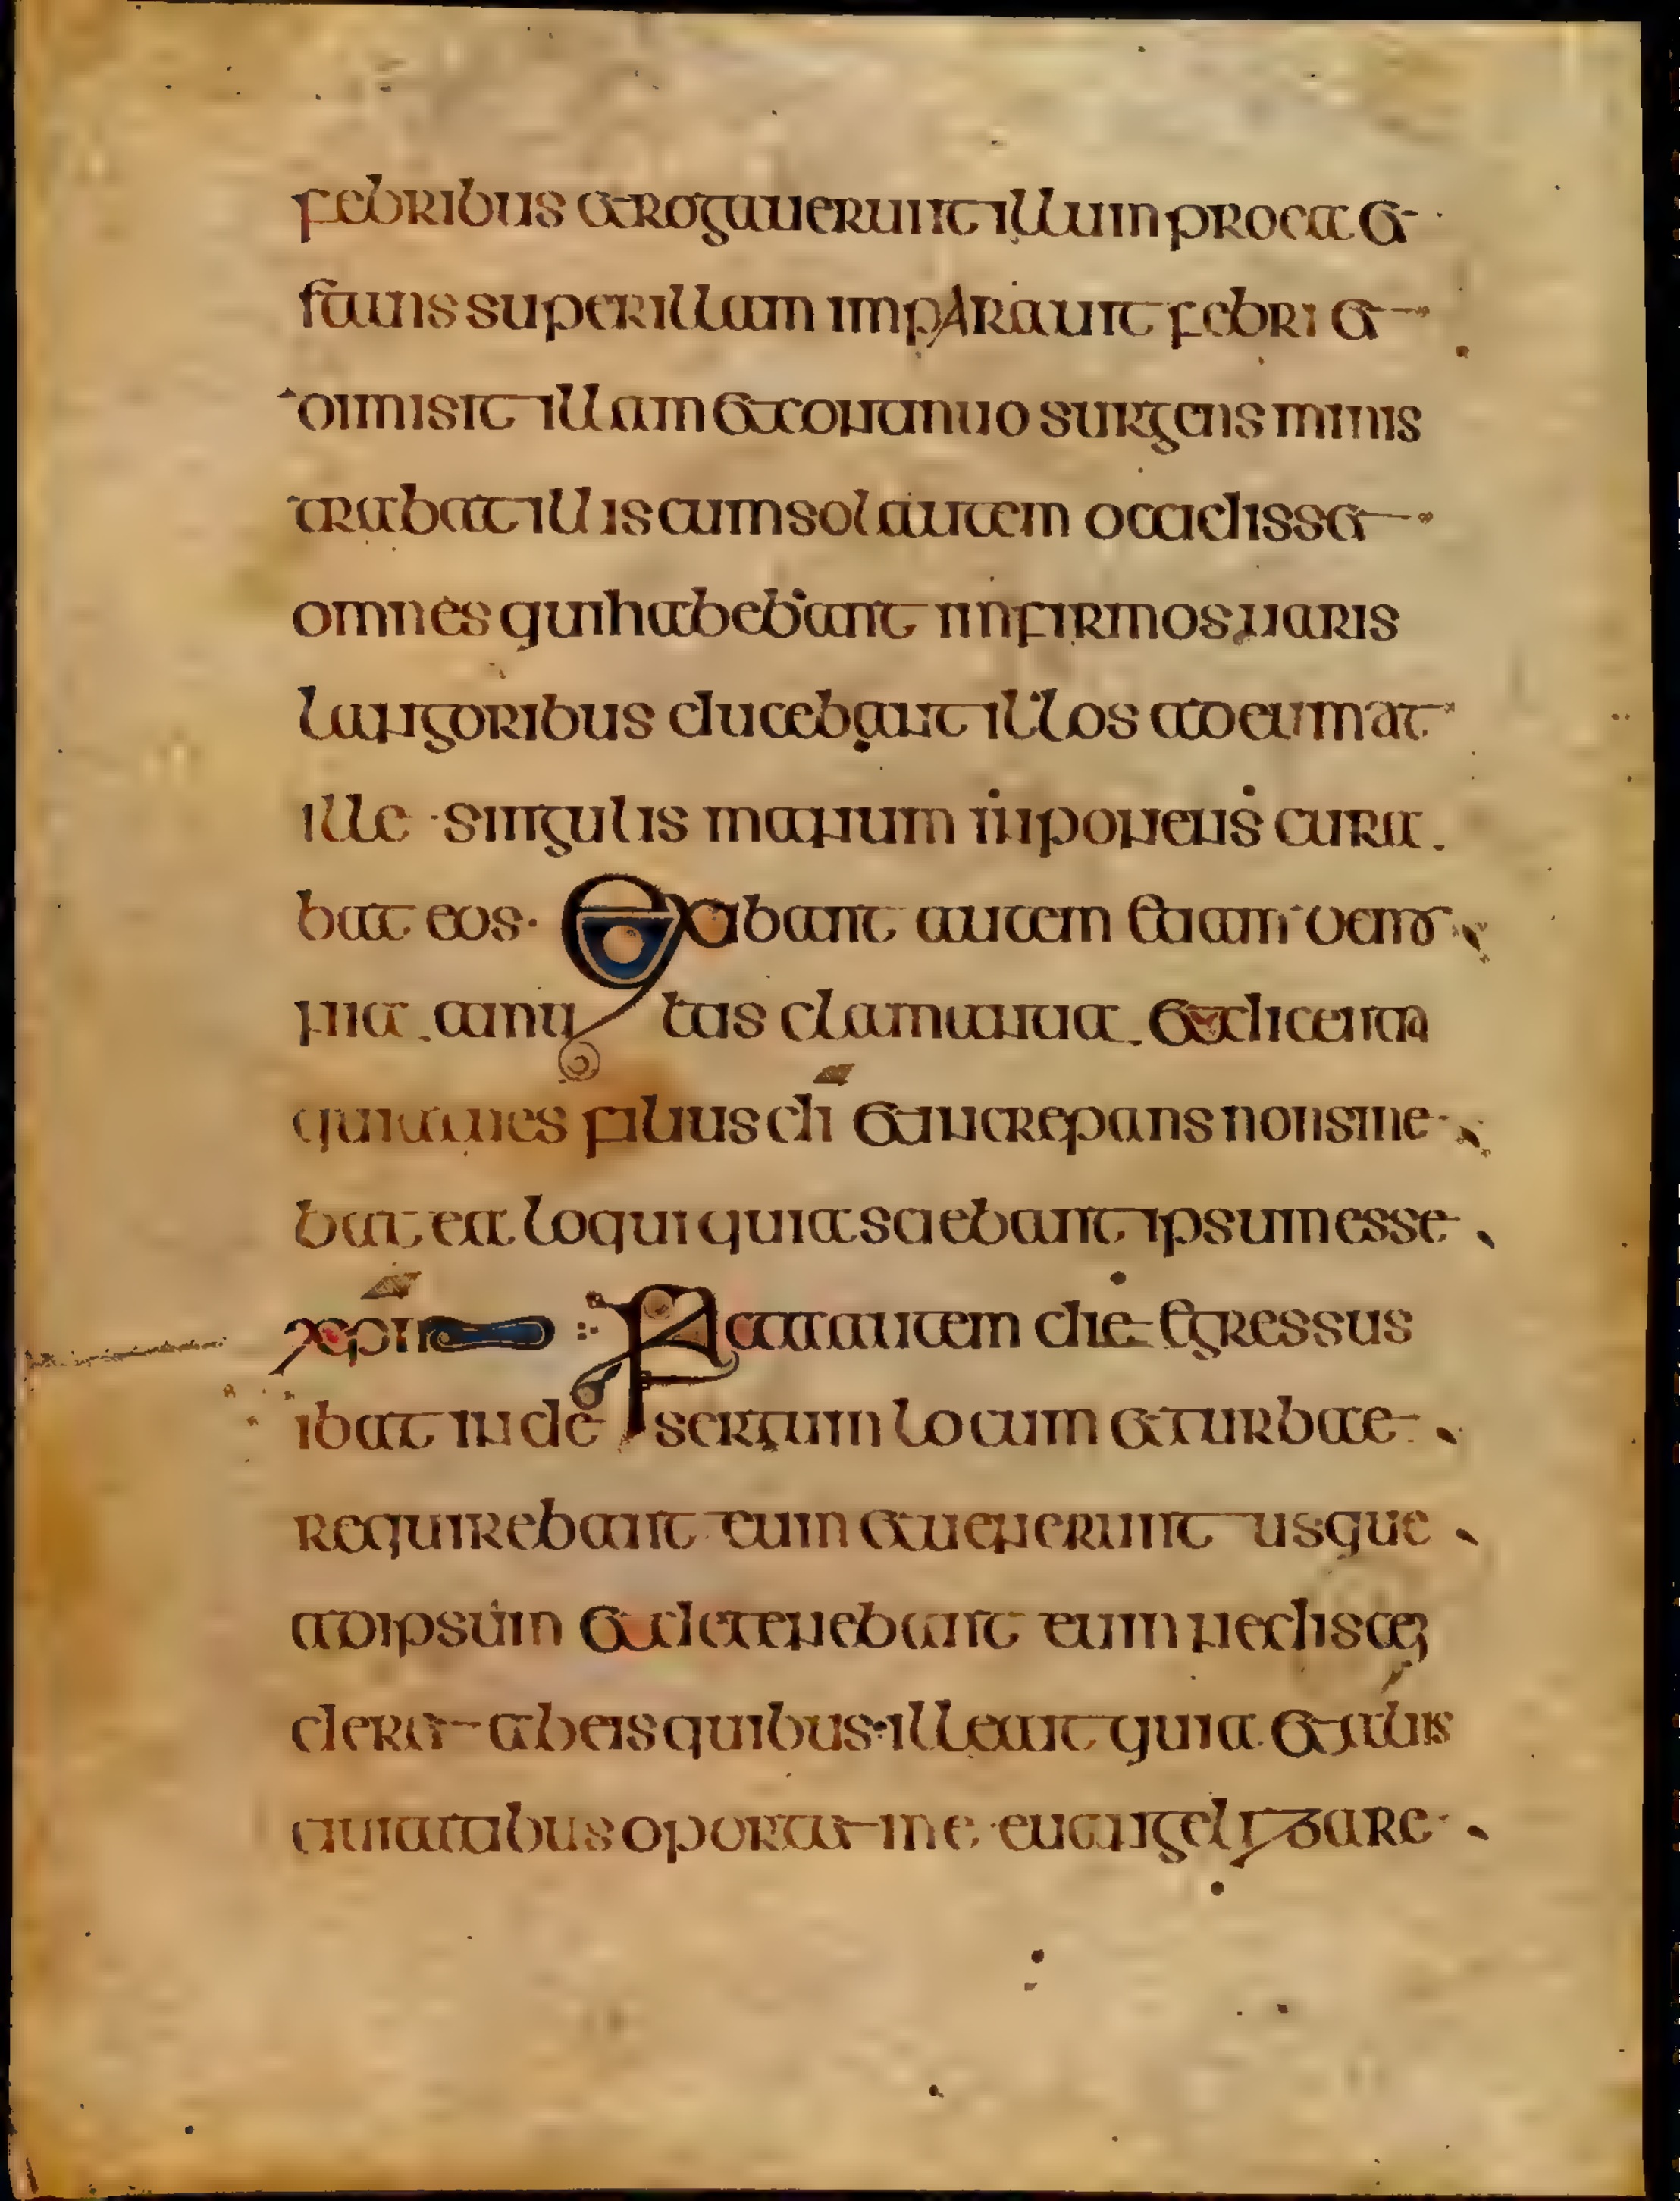 febribus et rogauerunt illum pro ea et
stans super illam imparauit febri et
dimisit illam et continuo surgens minis
trabat illis cum sol autem occidisset
omnes qui habebant infirmos uaris
langoribus ducebant illos ad eum at
ille singulis manum inponens cura
bat eos. Exibant autem etiam demo
nia a multis clamantia et dicentia
quia tu es filius di et increpans non sine
bat ea loqui quia sciebant ipsum esse
xpm Facta autem die egressus
ibat in desertum locum et turbae
requirebant eum et uenerunt usque
ad ipsum et detenebant eum ne disce
deret ab eis quibus ille ait quia et aliis
ciuitatibus oportet me euangelizare